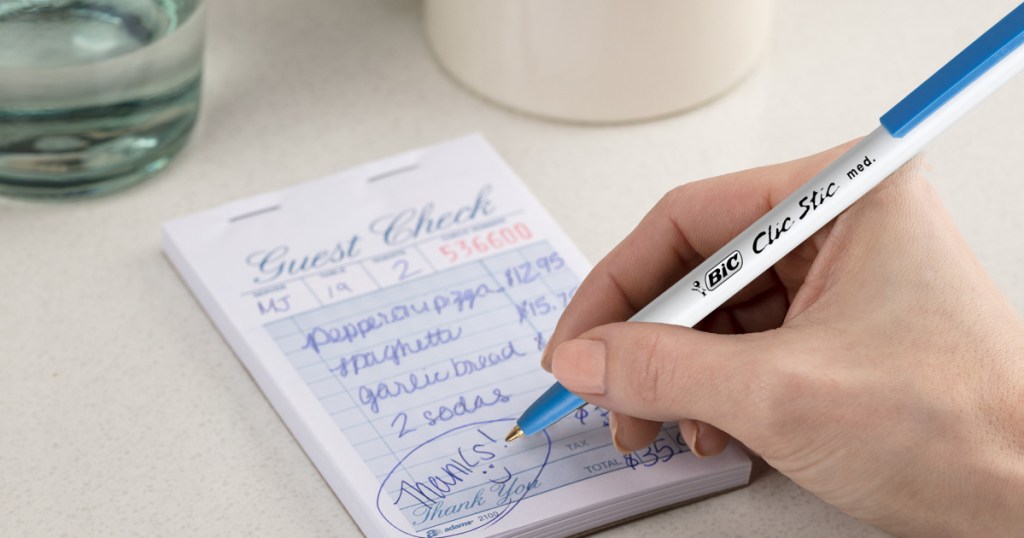 Guest Check
TABLE
536600
MJ 19 2
pepperoni pizza $12.95
spaghetti $15.7
garlic bread $
2 sodas $
Thanks!
TAX
TOTAL $135.
Thank You
a adams 2100
BIC Clic Stic med.